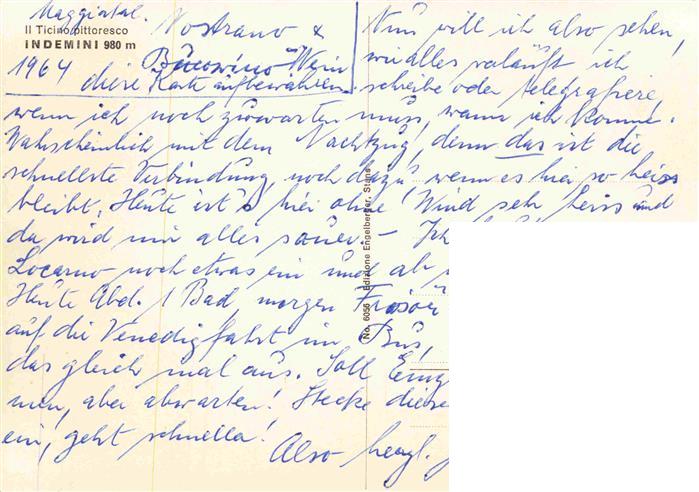 Maggiatal.
Il Ticino pittoresco
INDEMINI 980 m
1964
Nostrano &
Wein
diese Karte aufbewahren.
Nun will ich also sehen,
wie alles verläuft ich
schreibe oder telegrafiere,
wenn ich noch zuwarten muss, wann ich komme.
Wahrscheinlich mit dem Nachtzug, denn das ist die
schnellste Verbindung, noch dazu wenn es hier so heiss
bleibt. Heute ist's hier ohne Wind sehr heiss und
da wird mir alles sauer. – Ich
Locarno noch etwas ein und ab
Heute Abd. 1 Bad, morgen Frisör
auf die Venedigfahrt im Bus,
das gleich mal aus. Soll
men, aber abwarten! Stecke diese
ein, geht schneller!
Also herzl.
No. 6056 Edizione Engelberger, Stans